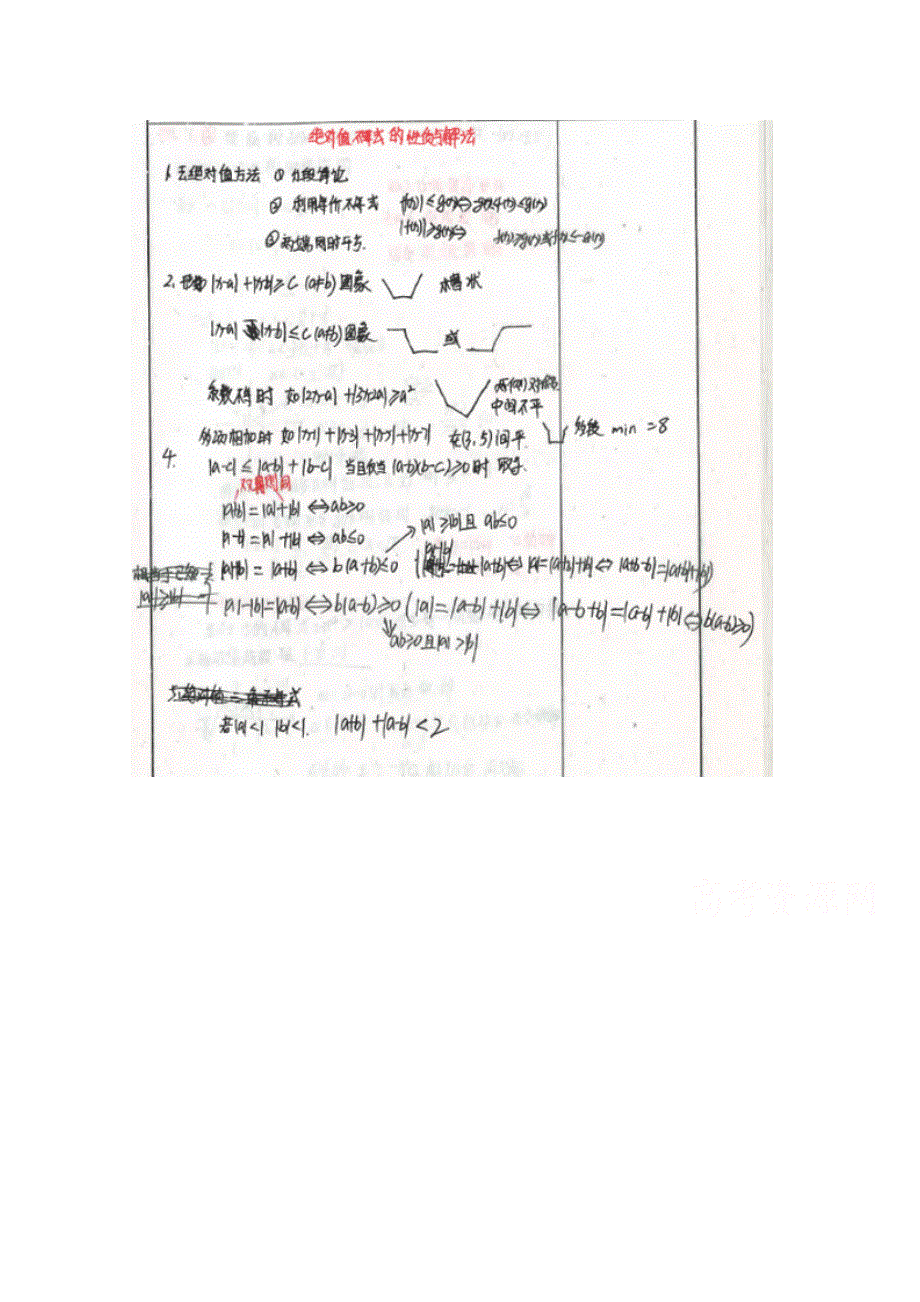 绝对值不等式的性质与解法
1.去绝对值方法 ① 分段讨论
② 利用等价不等式 |f(x)|≤g(x)⇔-g(x)≤f(x)≤g(x)
|f(x)|≥g(x)⇔ f(x)≥g(x)或f(x)≤-g(x)
③两端同时平方.
2. |x-a|+|x-b|≥C (a≠b)图象 槽状
|x-a| |x-b|≤C(a≠b)图象 或
系数不同时 如|2x-a|+|3x-2a|≥a²
中间不平
多项相加时 如|x-1|+|x-3|+|x-5|+|x-7| 在(3,5)间平 多段 min =8
4.
|a-c|≤|a-b|+|b-c| 当且仅当(a-b)(b-c)≥0时 取等.
|a+b|=|a|+|b|⇔ab≥0
|a-b|=|a|+|b|⇔ab≤0
|a|≥|b|且 ab≤0
|a|-|b|=|a+b|⇔b(a+b)≤0
|a|≥|b|
|a|-|b|=|a-b|⇔b(a-b)≥0(|a|=|a-b|+|b|⇔|a-b+b|=|a-b|+|b|⇔b(a-b)≥0)
ab≥0且|a|>|b|
若|a|<1 |b|<1. |a+b|+|a-b|<2
高考资源网